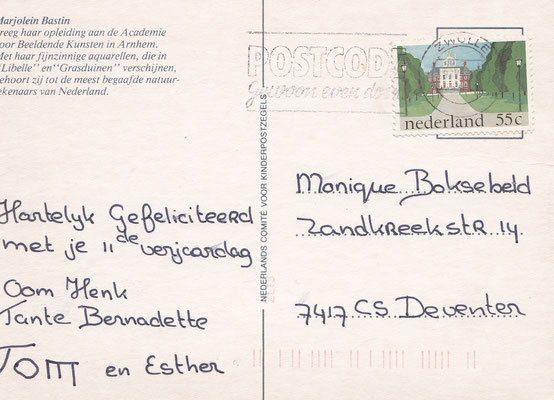 Marjolein Bastin
reeg haar opleiding aan de Academie
oor Beeldende Kunsten in Arnhem.
Met haar fijnzinnige aquarellen, die in
"Libelle" en "Grasduinen" verschijnen,
ehoort zij tot de meest begaafde natuur-
ekenaars van Nederland.
Hartelyk Gefeliciteerd
met je 11de verjaardag
Oom Henk
Tante Bernadette
Tom en Esther
NEDERLANDS COMITÉ VOOR KINDERPOSTZEGELS
POSTCODE
gewoon even doen
ZWOLLE
nederland 55c
Manique Boksebeld
Zandkreekstr. 14.
7417 CS Deventer